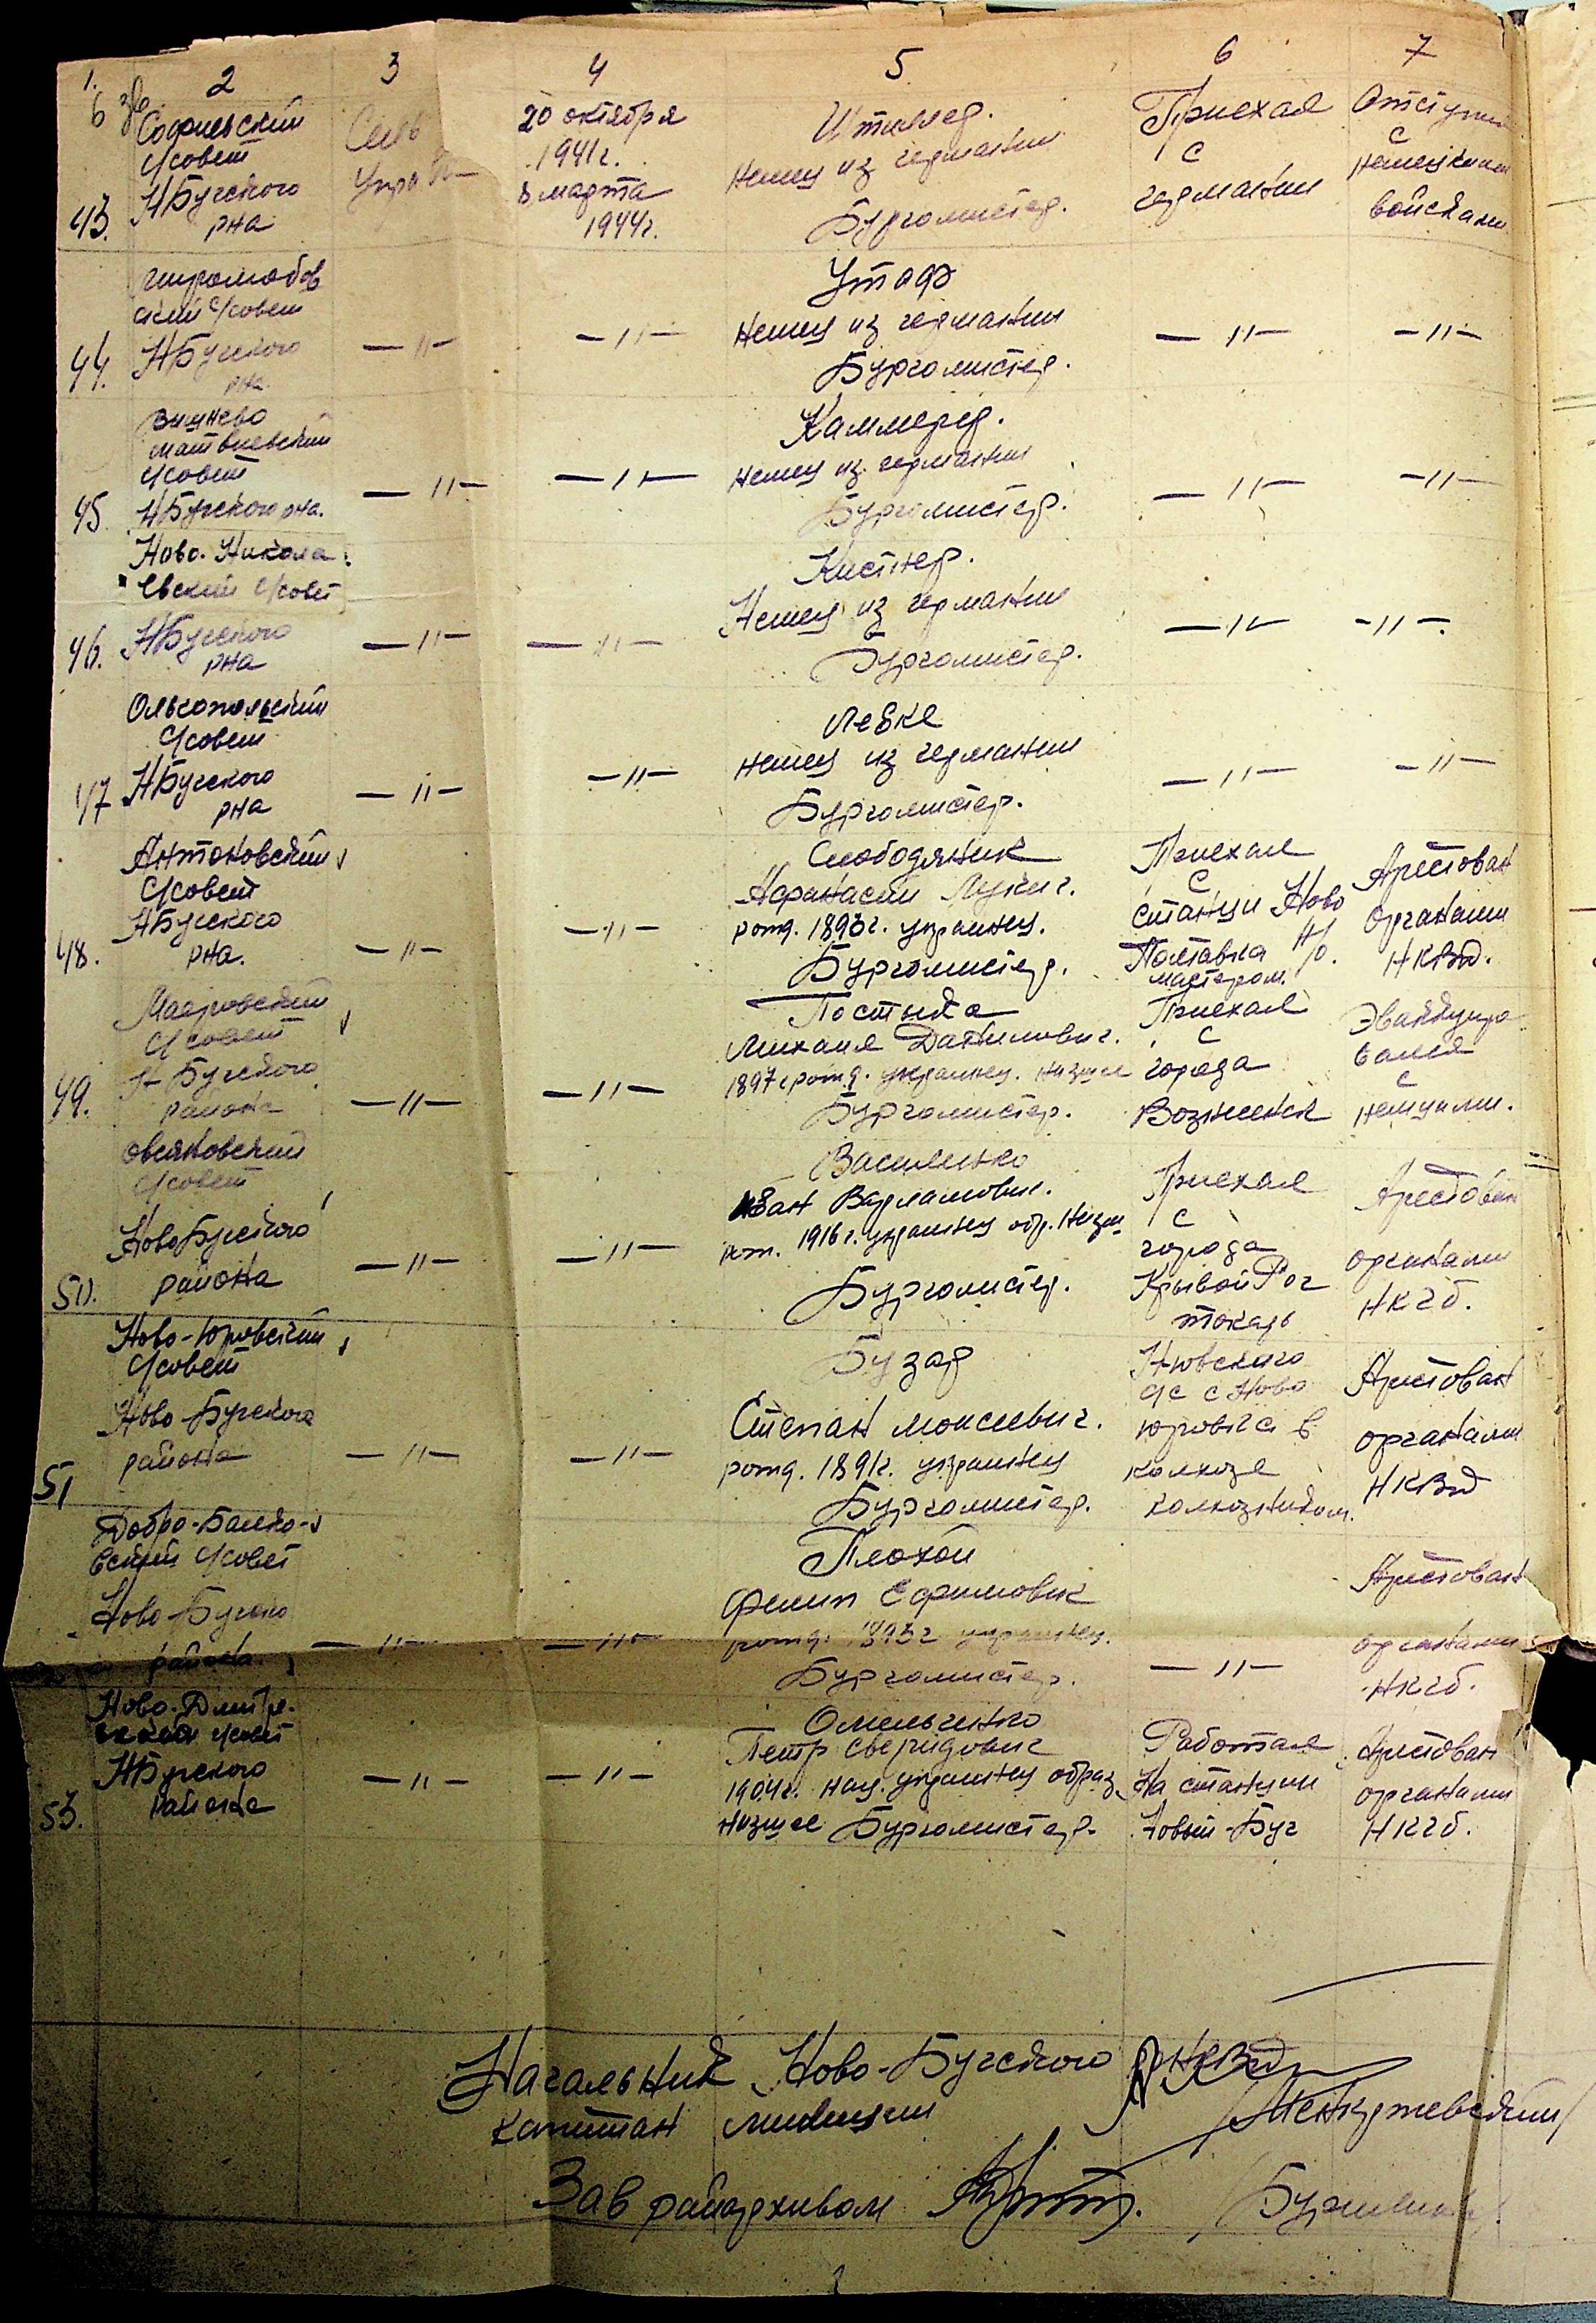 1. 2 3 4 5 6 7
Софиевский
с/совет
43. НБугского
рна
Сель
20 октября
1941г.
8 марта
1944г.
Штиллер.
Немец из германии
Бургомистер.
Приехал
с
германии
Отступил
с
немецкими
войсками
ский с/совет
44. НБугского
рна.
— 〃 —
— 〃 —
Немец из германии
Бургомистер.
— 〃 —
— 〃 —
Вишнево
матвиевский
с/совет
45 НБугского рна.
— 〃 —
— 〃 —
Каммерер.
Немец из германии
Бургомистер.
— 〃 —
— 〃 —
Ново-Никола
евский с/совет
46. НБугского
рна
— 〃 —
— 〃 —
Кистнер.
Немец из германии
Бургомистер.
— 〃 —
— 〃 —
Ольгопольский
с/совет
47 НБугского
рна
— 〃 —
— 〃 —
Левке
немец из германии
Бургомистер.
— 〃 —
— 〃 —
Антоновский
с/совет
48. НБугского
рна.
— 〃 —
— 〃 —
Слободяник
Афанасий Лукич.
рожд. 1893г. украинец.
Бургомистер.
Приехал
с
станции Ново
Полтавка
мастером.
Арестован
Органами
НКВД.
с/совет
49. Н-Бугского
района
— 〃 —
— 〃 —
Михаил Данилович.
1897 г рожд. украинец. низшее
Бургомистер.
Приехал
с
города
Вознесенск
Эвакуиро
вался
с
немцами.
Овсяновский
с/совет
НовоБугского
50. района
— 〃 —
— 〃 —
Василенко
Иван Варламович.
рож. 1916г. украинец обр. Низш.
Бургомистер.
Приехал
с
города
Кривой Рог
токарь
Арестован
органами
НКГБ.
Ново-Юрьевский
с/совет
Ново-Бугского
51 района
— 〃 —
— 〃 —
Бузар
Степан моисеевич.
рожд. 1891г. украинец
Бургомистер.
с/с с Ново
в
колхозе
колхозником.
Арестован
органами
НКВД
Добро-Балко-
вский с/совет
Ново-Бугского
района.
— 〃 —
— 〃 —
Плохой
Филип Ефимович
рожд. 1893г украинец.
Бургомистер.
— 〃 —
Арестован
органами
НКГБ.
Ново-Дмитр.
с/совет
НБугского
53. района
— 〃 —
— 〃 —
Омельченко
Петр Свиридович
1904г. нац. украинец образ.
низшее Бургомистер.
Работал
На станции
Новый-Буг
Арестован
органами
НКГБ.
Начальник Ново-Бугского НКВД
капитан милиции
Зав райархивом